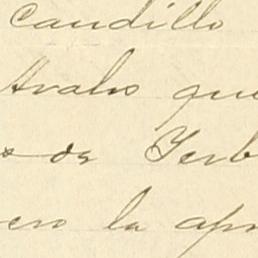 Caudillo
Avalos que
os de Yerb
ero la apr